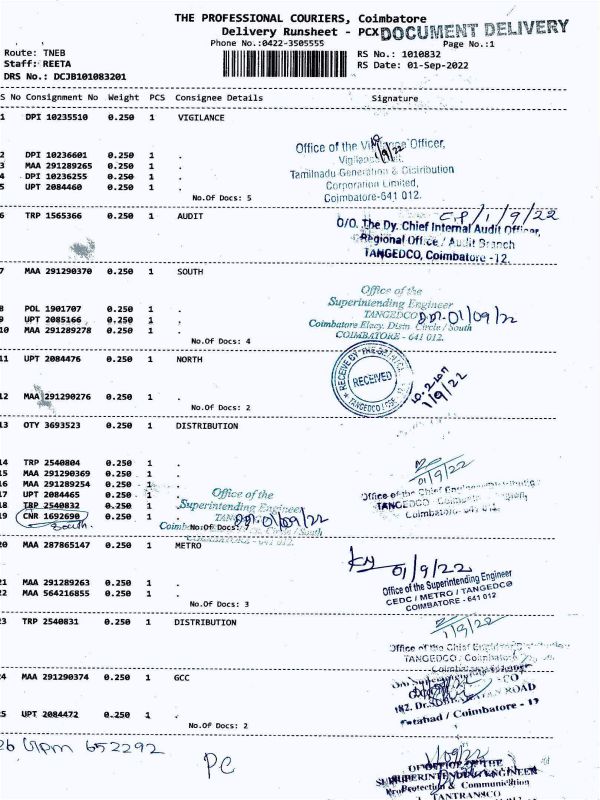 THE PROFESSIONAL COURIERS, Coimbatore
Delivery Runsheet - PCX
DOCUMENT DELIVERY
Phone No.:0422-3505555
Page No.:1
Route: TNEB
RS No.: 1010832
Staff: REETA
RS Date: 01-Sep-2022
DRS No.: DCJB101083201
S No Consignment No Weight PCS Consignee Details Signature
1 DPI 10235510 0.250 1 VIGILANCE
2 DPI 10236601 0.250 1 .
3 MAA 291289265 0.250 1 .
4 DPI 10236255 0.250 1 .
5 UPT 2084460 0.250 1 .
No.Of Docs: 5
Office of the Officer,
Tamilnadu Generation & Distribution
Corporation Limited,
Coimbatore-641 012.
1/9/22
6 TRP 1565366 0.250 1 AUDIT
1/9/22
O/O. The Dy. Chief Internal Audit Officer,
Regional Office / Audit Branch
TANGEDCO, Coimbatore -12.
7 MAA 291290370 0.250 1 SOUTH
8 POL 1901707 0.250 1 .
9 UPT 2085166 0.250 1 .
10 MAA 291289278 0.250 1 .
No.Of Docs: 4
Office of the
Superintending Engineer
TANGEDCO
Coimbatore Elecy. Distn Circle / South
COIMBATORE - 641 012.
01/09/22
11 UPT 2084476 0.250 1 NORTH
12 MAA 291290276 0.250 1 .
No.Of Docs: 2
RECEIVED
1/9/22
13 OTY 3693523 0.250 1 DISTRIBUTION
14 TRP 2540804 0.250 1 .
15 MAA 291290369 0.250 1 .
16 MAA 291289254 0.250 1 .
17 UPT 2084465 0.250 1 .
18 TRP 2540832 0.250 1 .
19 CNR 1692690 0.250 1 .
South.
No.Of Docs: 7
Office of the
Superintending Engineer
01/09/22
1/9/22
Office of the Chief
TANGEDCO
20 MAA 287865147 0.250 1 METRO
21 MAA 291289263 0.250 1 .
22 MAA 564216855 0.250 1 .
No.Of Docs: 3
01/9/22
Office of the Superintending Engineer
CEDC / METRO / TANGEDCO
COIMBATORE - 641 012
23 TRP 2540831 0.250 1 DISTRIBUTION
1/9/22
Office of the Chief
TANGEDCO
24 MAA 291290374 0.250 1 GCC
25 UPT 2084472 0.250 1 .
No.Of Docs: 2
ROAD
/ Coimbatore - 12
26 upm 652292
PC
/09/22
Protection & Communication
TANTRANSCO